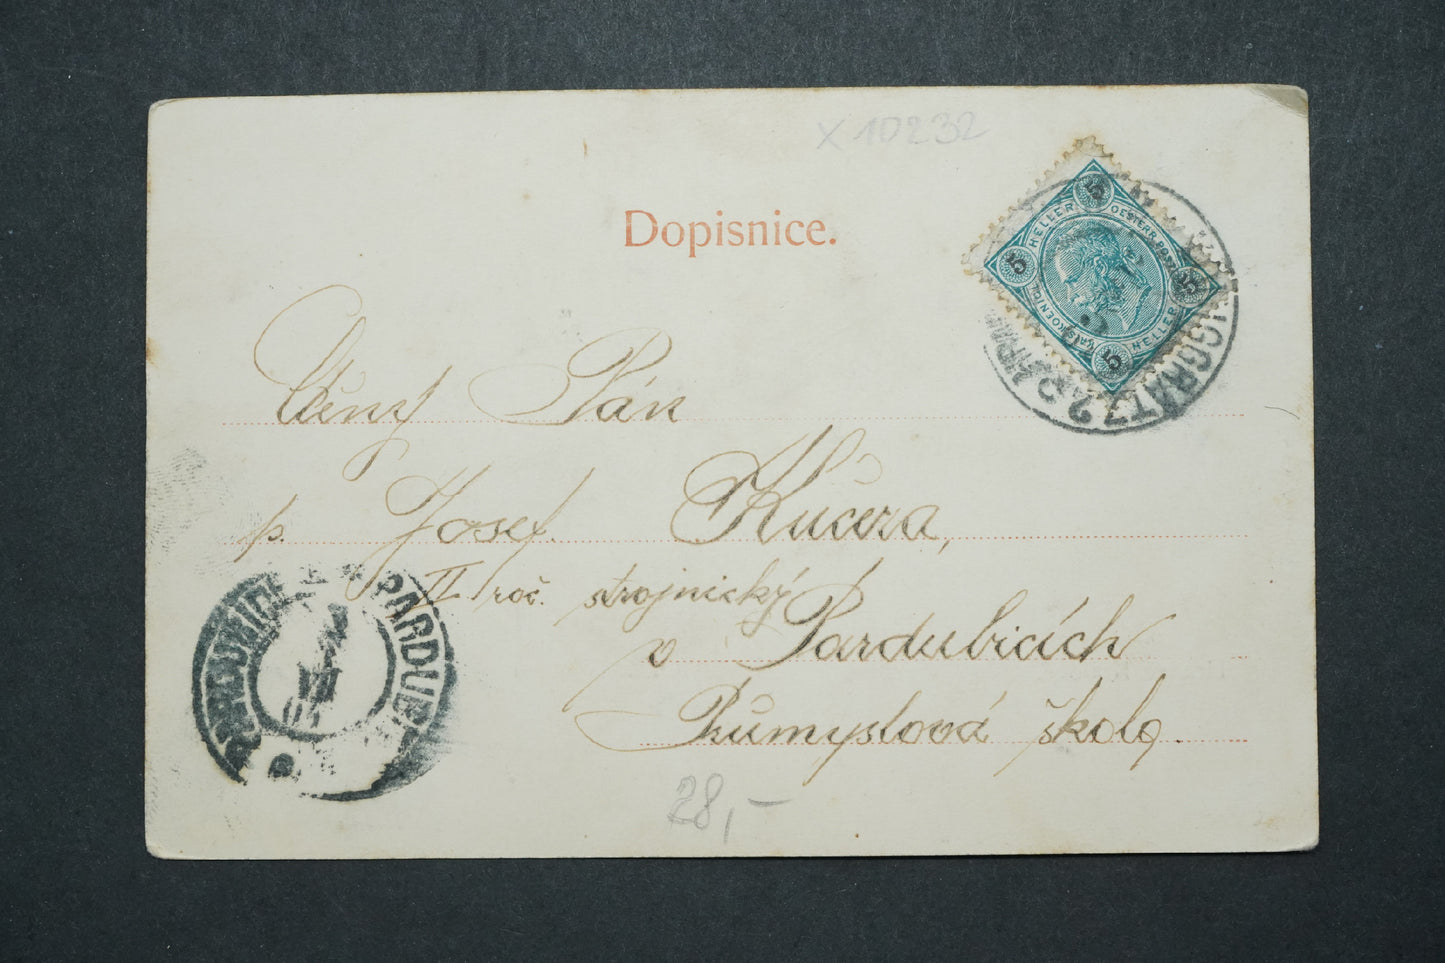 X 10232
Dopisnice.
5 HELLER 5 OESTERR. POST 5 HELLER 5 KAIS. KOENIGL.
GGRATZ 2
Ctěný Pán
p. Josef Kučera,
II roč. strojnický
v Pardubicích
Průmyslová škola.
PARDUBICE * PARDUB
VII
28,-